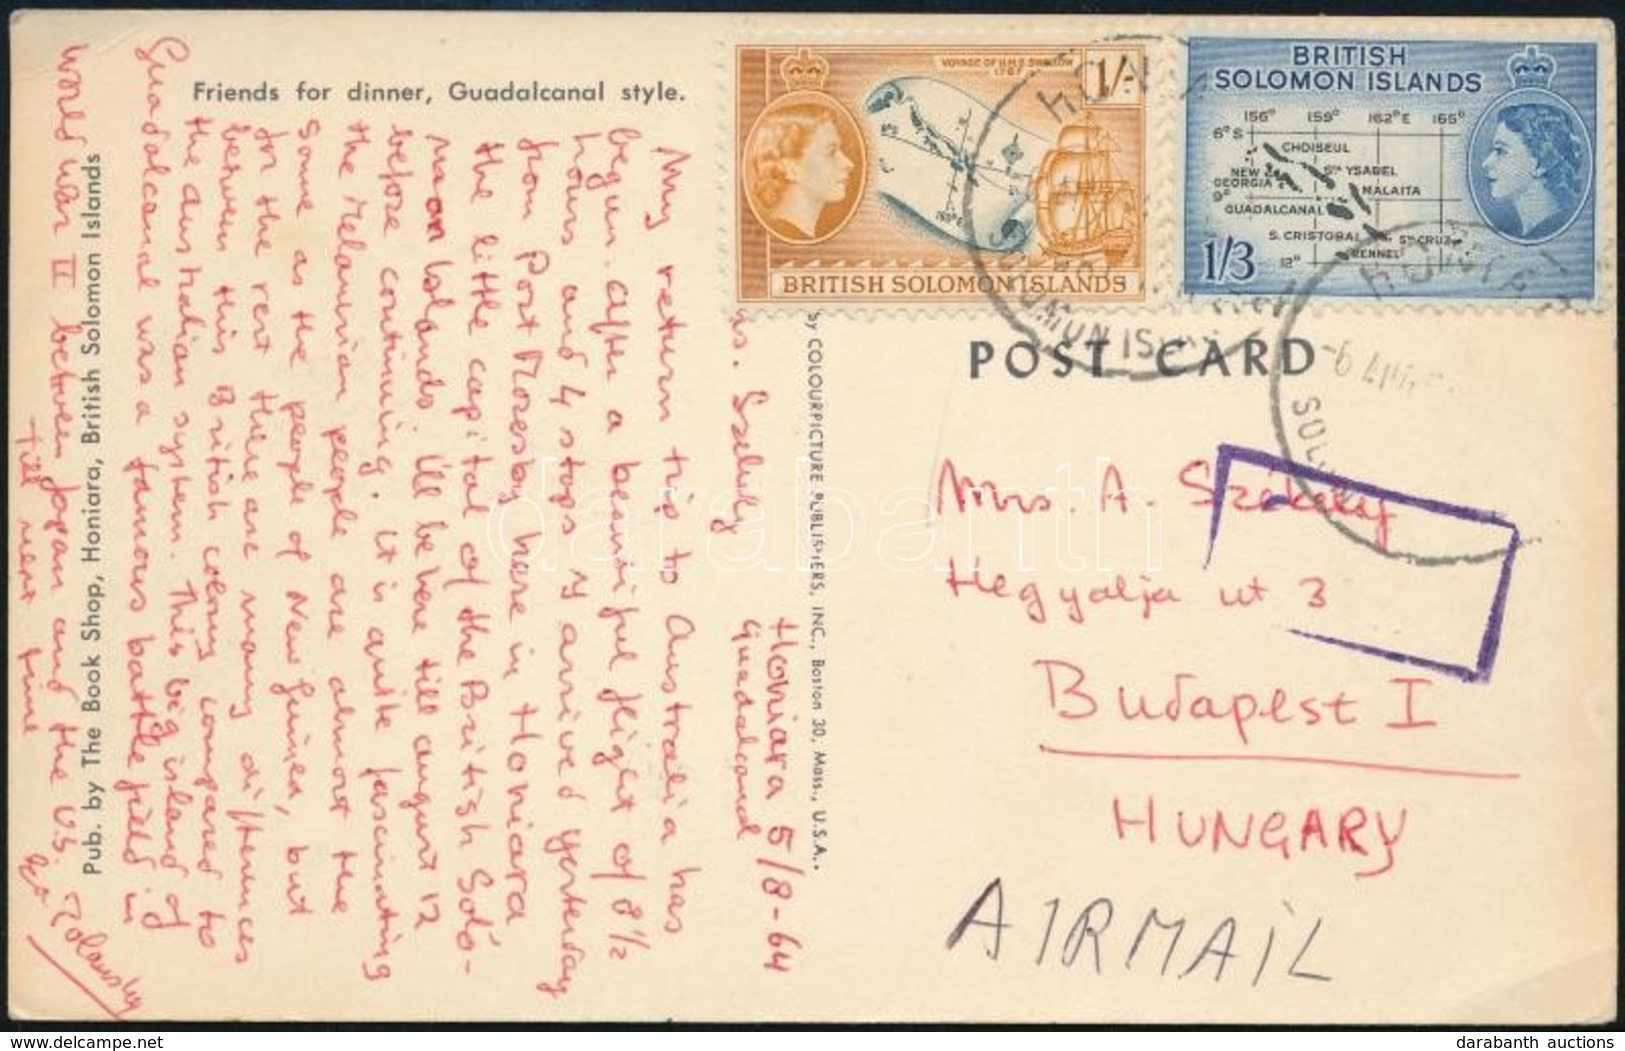 Friends for dinner, Guadalcanal style.
Pub. by The Book Shop, Honiara, British Solomon Islands
by COLOURPICTURE PUBLISHERS, INC., Boston 30, Mass., U.S.A.
Honiara 5/8-64
Guadalcanal
Székely
My return trip to Australia has
begun. After a beautiful flight of 8½
hours and 4 stops I arrived yesterday
from Port Moresby here in Honiara
the little capital of the British Solo-
mon Islands. I'll be here till august 12
before continuing. It is quite fascinating
the Melanesian people are almost the
same as the people of New Guinea, but
for the rest there are many differences
between this British colony compared to
the australian system. This big island of
Guadalcanal was a famous battle field in
World War II between Japan and the U.S.
till next time
VOYAGE OF H.M.S. SWALLOW
1767
1/-
BRITISH SOLOMON ISLANDS
BRITISH
SOLOMON ISLANDS
156° 159° 162°E 165°
6°S
CHOISEUL
STA YSABEL
NEW GEORGIA
MALAITA
9°
GUADALCANAL
S. CRISTOBAL
STA CRUZ
12°
RENNEL
1/3
POST CARD
Mrs. A. Székely
Hegyalja ut 3
Budapest I
HUNGARY
AIRMAIL
darabanth
darabanth auctions